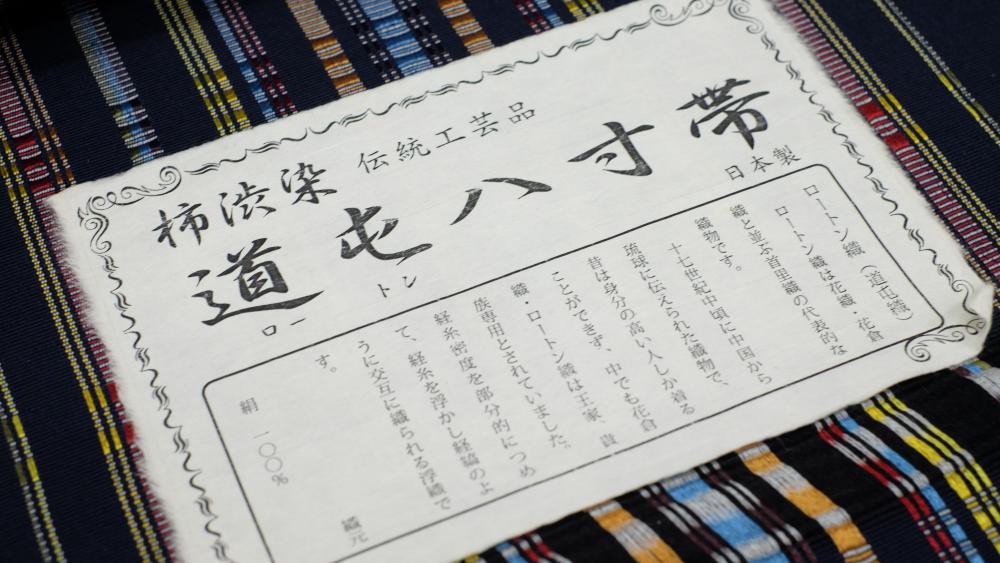 柿渋染
伝統工芸品
道屯八寸帯
ロートン
日本製
ロートン織（道屯織）
ロートン織は花織・花倉
織と並ぶ首里織の代表的な
織物です。
十七世紀中頃に中国から
琉球に伝えられた織物で、
昔は身分の高い人しか着る
ことができず、中でも花倉
織・ロートン織は王家、貴
族専用とされていました。
経糸密度を部分的につめ
て、経糸を浮かし経縞のよ
うに交互に織られる浮織で
す。
絹　一〇〇％
織元